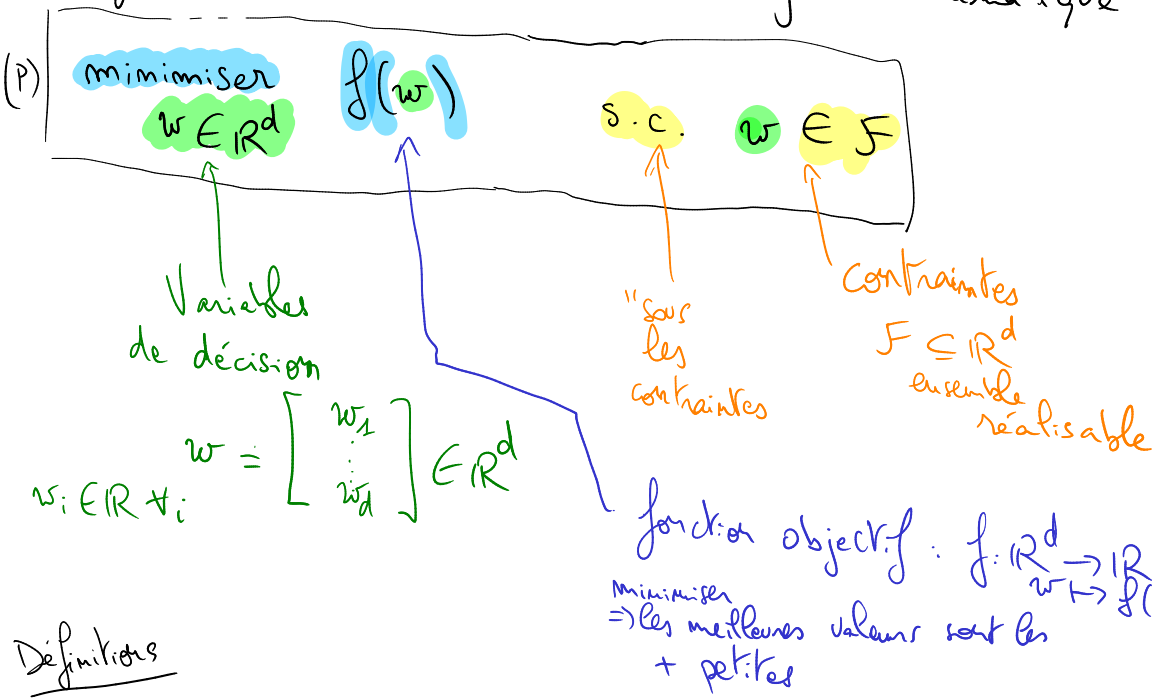 (P) minimiser f(w) s.c. w ∈ F
w ∈ ℝᵈ
Variables
de décision
w = [w₁ ⋮ w_d] ∈ ℝᵈ
wᵢ ∈ ℝ ∀i
"sous
les
contraintes
Contraintes
F ⊆ ℝᵈ
ensemble
réalisable
fonction objectif : f: ℝᵈ → ℝ
w ↦ f(
minimiser
⇒ les meilleures valeurs sont les
+ petites
Définitions